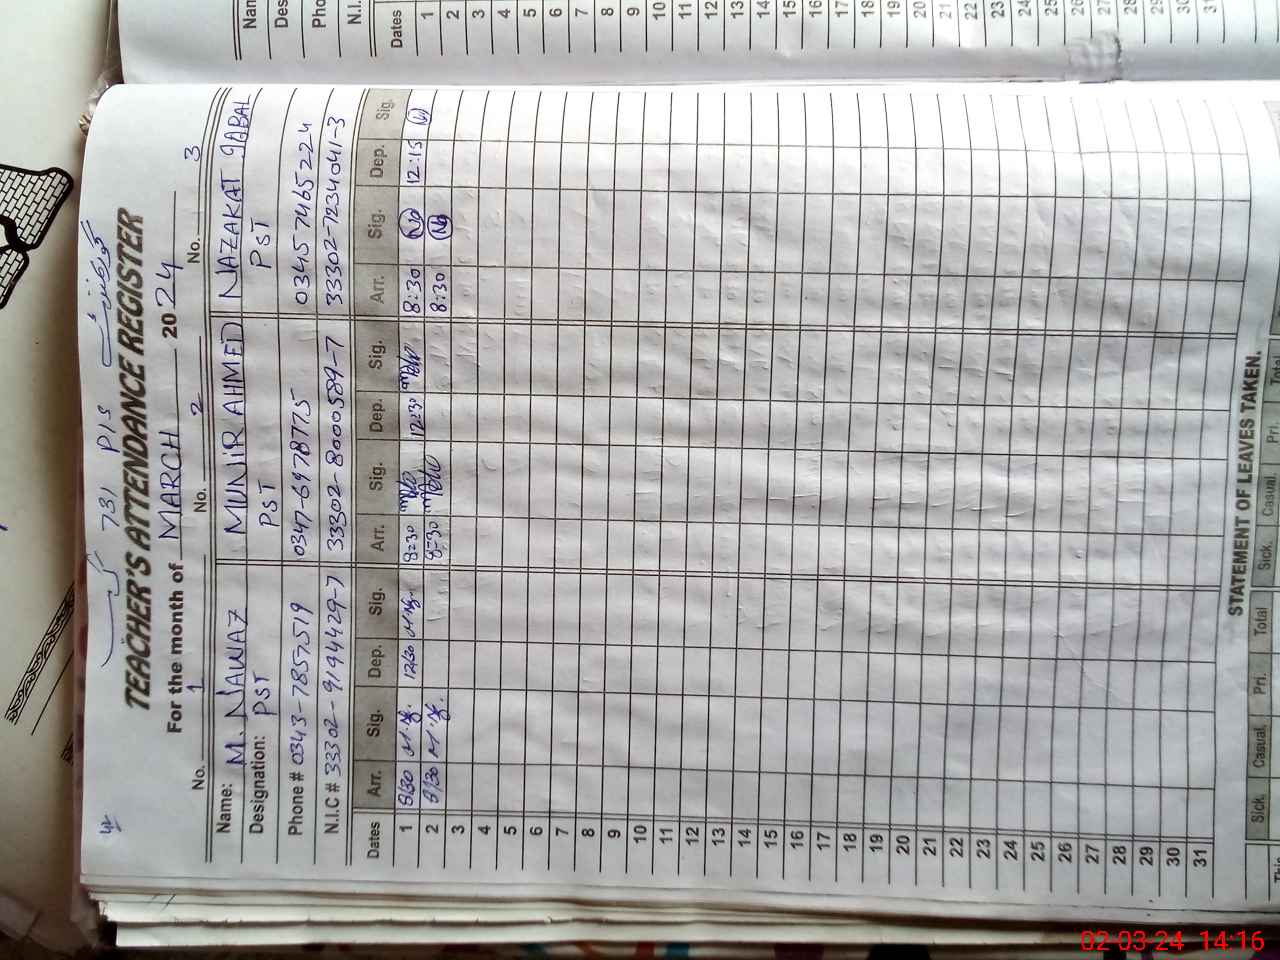 731 P/S گورنمنٹ
TEACHER'S ATTENDANCE REGISTER
For the month of MARCH 2024
No. 1 No. 2 No. 3
Name: M. NAWAZ MUNIR AHMED NAZAKAT IQBAL
Designation: PST PST PST
Phone # 0343-7857519 0347-6978775 03457465224
N.I.C # 33302-9194429-7 33302-8000589-7 33302-7234041-3
Dates Arr. Sig. Dep. Sig. Arr. Sig. Dep. Sig. Arr. Sig. Dep. Sig.
1 8/30 12/30 8=30 12=30 8:30 12:15
2 8/30 8=30 8:30
3
4
5
6
7
8
9
10
11
12
13
14
15
16
17
18
19
20
21
22
23
24
25
26
27
28
29
30
31
STATEMENT OF LEAVES TAKEN.
Sick. Casual. Pri. Total Sick. Casual. Pri. Total
Dates
1
2
3
4
5
6
7
8
9
10
11
12
13
14
15
16
17
18
19
20
21
22
23
24
25
26
27
28
29
30
31
02-03-24 14:16